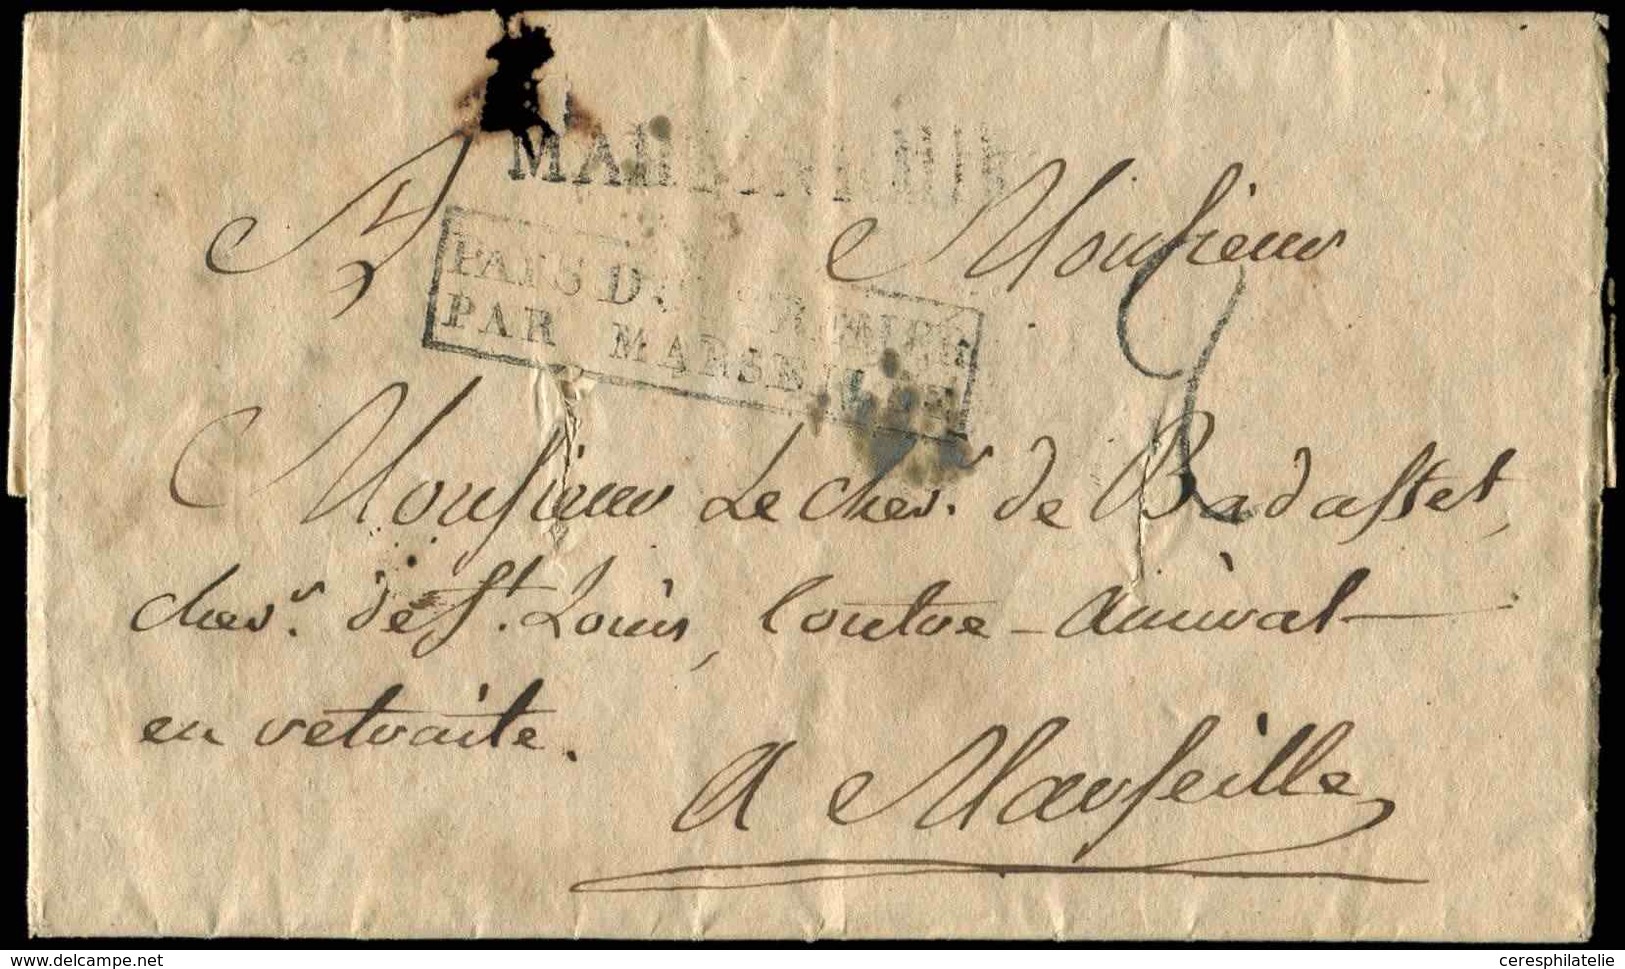 MARTINIQUE
PAYS D'OUTREMER
PAR MARSEILLE
Monsieur
Monsieur Le chev.r de Badasset,
chev.r de St. Louis, Contre-amiral
en retraite.
A Marseille
www.delcampe.net
ceresphilatelie